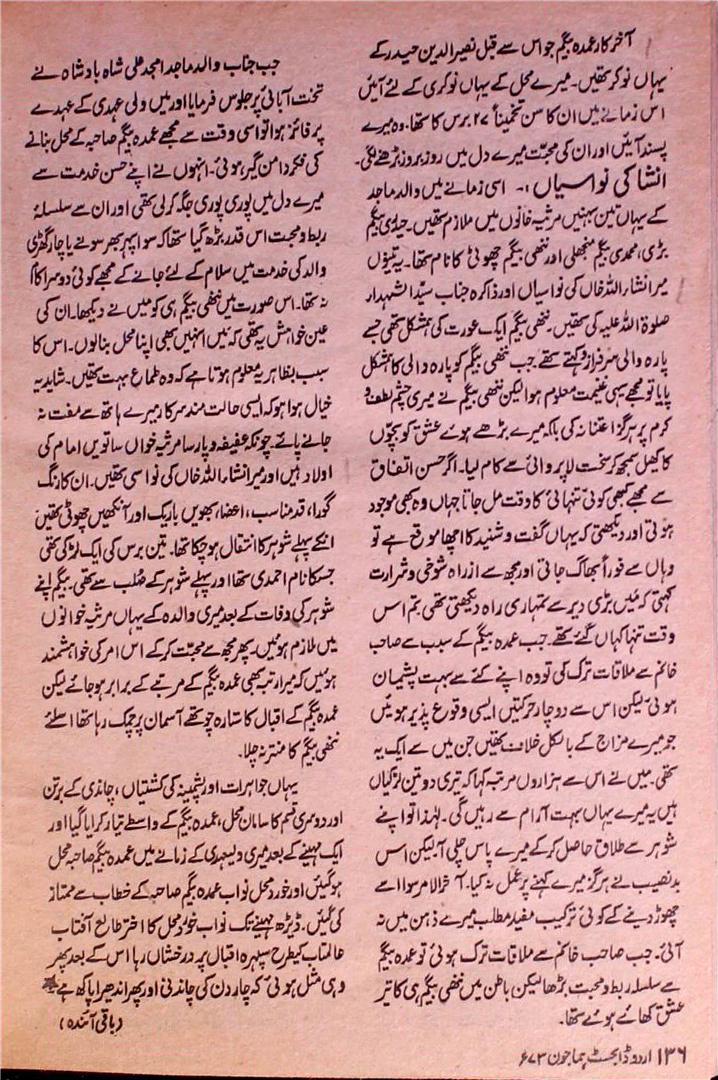 آخر کار عمدہ بیگم جو اس سے قبل نصیر الدین حیدر کے
یہاں نوکر تھیں۔ میرے محل کے یہاں نوکری کے لئے آئیں
اس زمانے میں ان کا سن تخمیناً ۲۷ برس کا تھا۔ وہ میرے
پسند آئیں اور ان کی محبت میرے دل میں روز بروز بڑھنے لگی۔
انشا کی نواسیاں :۔ اسی زمانے میں والد ماجد
کے یہاں تین بہنیں مرثیہ خانوں میں ملازم تھیں۔ حیدری بیگم
بڑی، محمدی بیگم منجھلی اور ننھی بیگم چھوٹی کا نام تھا۔ یہ تینوں
میر انشاء اللہ خاں کی نواسیاں اور ذاکرہ جناب سید الشہدار
صلوۃ اللہ علیہ کی تھیں۔ ننھی بیگم ایک عورت کی ہمشکل تھی جسے
پارہ والی سرفراز و کہتے تھے۔ جب ننھی بیگم کو پارہ والی کا ہمشکل
پایا تو مجھے یہی غنیمت معلوم ہوا لیکن ننھی بیگم نے میری چشم لطف و
کرم پر ہرگز اعتنا نہ کی بلکہ میرے بڑھے ہوئے عشق کو بچوں
کا کھیل سمجھ کر سخت لاپروائی سے کام لیا۔ اگر حسن اتفاق
سے مجھے کبھی کوئی تنہائی کا وقت مل جاتا جہاں وہ بھی موجود
ہوتی اور دیکھتی کہ یہاں گفت و شنید کا اچھا موقع ہے تو
وہاں سے فوراً بھاگ جاتی اور مجھ سے ازراہ شوخی و شرارت
کہتی کہ میں بڑی دیر سے تمہاری راہ دیکھتی تھی تم اس
وقت تنہا کہاں گئے تھے۔ جب عمدہ بیگم کے سبب سے صاحب
خانم سے ملاقات ترک کی تو وہ اپنے کئے سے بہت پشیمان
ہوئی لیکن اس سے دو چار حرکتیں ایسی وقوع پذیر ہوئیں
جو میرے مزاج کے بالکل خلاف تھیں جن میں سے ایک یہ
تھی۔ میں نے اس سے ہزاروں مرتبہ کہا کہ تیری دو تین لڑکیاں
ہیں یہ میرے یہاں بہت آرام سے رہیں گی۔ لہٰذا تو اپنے
شوہر سے طلاق حاصل کر کے میرے پاس چلی آ۔ لیکن اس
بدنصیب نے ہرگز میرے کہنے پر عمل نہ کیا۔ آخر الامر سوا اسے
چھوڑ دینے کے کوئی ترکیب مفید مطلب میرے ذہن میں نہ
آئی۔ جب صاحب خانم سے ملاقات ترک ہوئی تو عمدہ بیگم
سے سلسلہ ربط و محبت بڑھا لیکن باطن میں ننھی بیگم ہی کا تیر
عشق کھائے ہوئے تھا۔
جب جناب والد ماجد امجد علی شاہ بادشاہ نے
تخت آبائی پر جلوس فرمایا اور میں ولی عہدی کے عہدے
پر فائز ہوا تو اسی وقت سے مجھے عمدہ بیگم صاحبہ کے محل بنانے
کی فکر دامن گیر ہوئی۔ انہوں نے اپنے حسن خدمت سے
میرے دل میں پوری پوری جگہ کر لی تھی اور ان سے سلسلۂ
ربط و محبت اس قدر بڑھ گیا تھا کہ سوا پہر بھر سونے یا چار گھڑی
والد کی خدمت میں سلام کے لئے جانے کے مجھے کوئی دوسرا کام
نہ تھا۔ اس صورت میں ننھی بیگم ہی کو میں نے دیکھا۔ ان کی
عین خواہش یہ تھی کہ میں انہیں بھی اپنا محل بنا لوں۔ اس کا
سبب بظاہر یہ معلوم ہوتا ہے کہ وہ طماع بہت تھیں۔ شاید یہ
خیال ہوا ہو کہ ایسی حالت مند سرکار میرے ہاتھ سے مفت نہ
جانے پائے۔ چونکہ عفیفہ و پارسا مرثیہ خواں ساتویں امام کی
اولاد ہیں اور میر انشاء اللہ خاں کی نواسی تھیں۔ ان کا رنگ
گورا، قد مناسب، اعضا، بھویں باریک اور آنکھیں چھوٹی تھیں
انکے پہلے شوہر کا انتقال ہو چکا تھا۔ تین برس کی ایک لڑکی تھی
جس کا نام احمدی تھا اور پہلے شوہر کے صُلب سے تھی۔ بیگم اپنے
شوہر کی وفات کے بعد میری والدہ کے یہاں مرثیہ خوانوں
میں ملازم ہوئیں۔ پھر مجھ سے محبت کر کے اس امر کی خواہشمند
ہوئیں کہ میرا رتبہ بھی عمدہ بیگم کے مرتبے کے برابر ہو جائے لیکن
عمدہ بیگم کے اقبال کا ستارہ چوتھے آسمان پر چمک رہا تھا اسلئے
ننھی بیگم کا منتر نہ چلا۔
یہاں جواہرات اور پشمینہ کی کشتیاں، چاندی کے برتن
اور دوسری قسم کا سامان محل، عمدہ بیگم کے واسطے تیار کرایا گیا اور
ایک مہینے کے بعد میری ولیعہدی کے زمانے میں عمدہ بیگم صاحبہ محل
ہو گئیں اور خورد محل نواب عمدہ بیگم صاحبہ کے خطاب سے ممتاز
کی گئیں۔ ڈیڑھ مہینے تک نواب خورد محل کا اختر طالع آفتاب
عالمتاب کیطرح سپہر اقبال پر درخشاں رہا اس کے بعد پھر
وہی مثل ہوئی کہ چار دن کی چاندنی اور پھر اندھیرا پاکھ ہے
(باقی آئندہ)
۱۳۶ اردو ڈائجسٹ ہما جون ۷۳ء